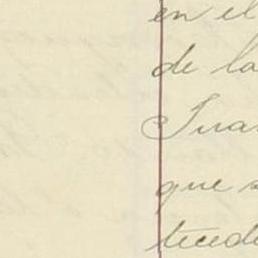 en el
de la
Juan
que s
tecede